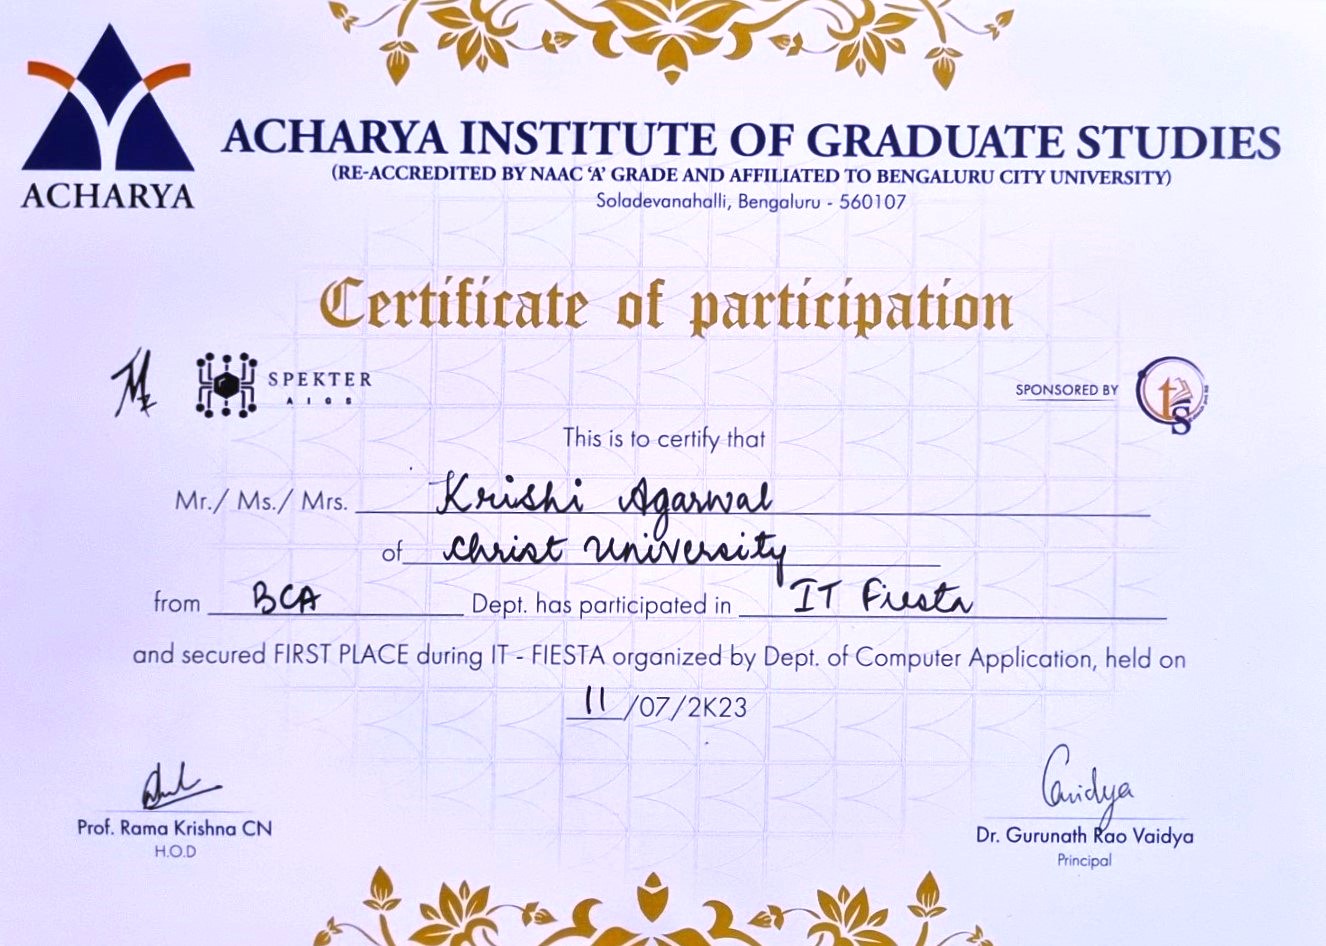 ACHARYA
ACHARYA INSTITUTE OF GRADUATE STUDIES
(RE-ACCREDITED BY NAAC ‘A’ GRADE AND AFFILIATED TO BENGALURU CITY UNIVERSITY)
Soladevanahalli, Bengaluru - 560107
Certificate of participation
SPEKTER
AIGS
SPONSORED BY
ts
This is to certify that
Mr./ Ms./ Mrs. Krishi Agarwal
of Christ University
from BCA Dept. has participated in IT Fiesta
and secured FIRST PLACE during IT - FIESTA organized by Dept. of Computer Application, held on
11/07/2K23
Prof. Rama Krishna CN
H.O.D
Gvaidya
Dr. Gurunath Rao Vaidya
Principal